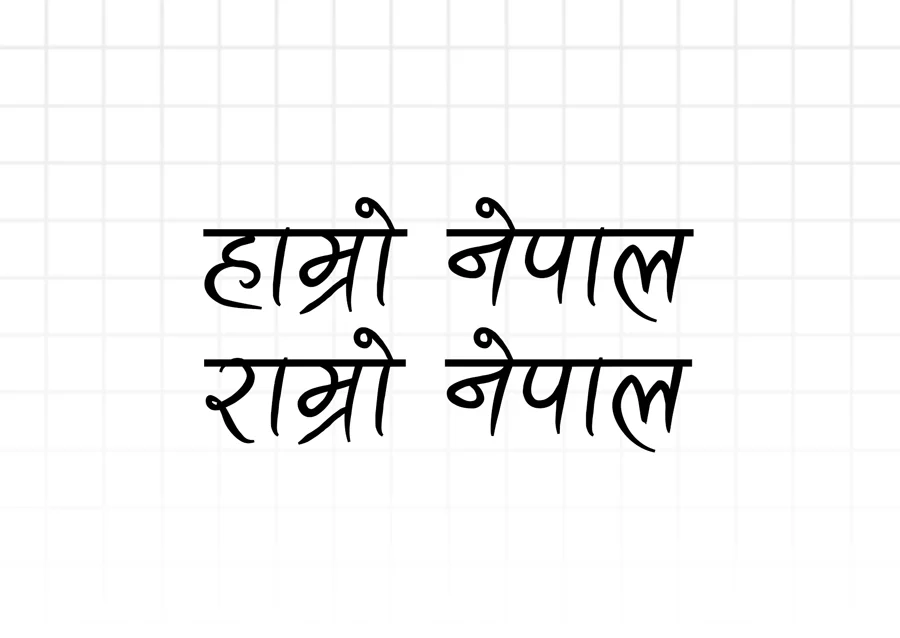 हाम्रो नेपाल
राम्रो नेपाल